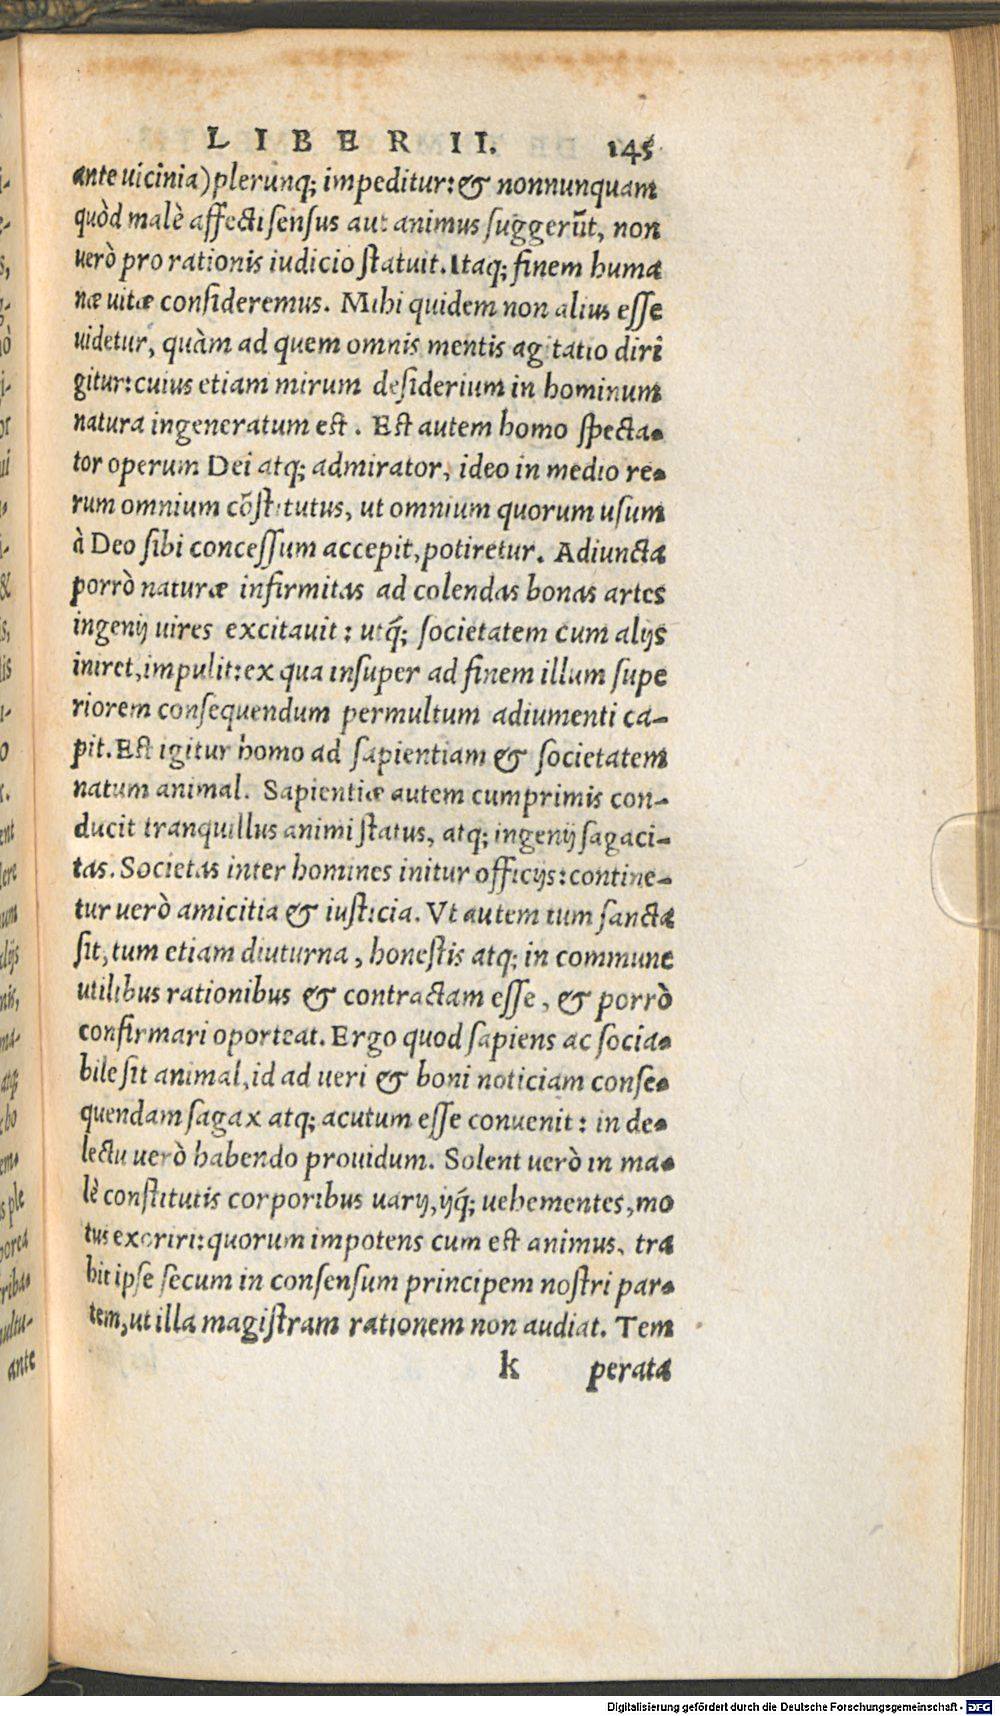 LIBER II. 145
ante uicinia) plerunq; impeditur: & nonnunquam
quòd malè affecti sensus aut animus suggerũt, non
uerò pro rationis iudicio statuit. Itaq; finem huma
næ uitæ consideremus. Mihi quidem non alius esse
uidetur, quàm ad quem omnis mentis agitatio diri
gitur: cuius etiam mirum desiderium in hominum
natura ingeneratum est. Est autem homo specta-
tor operum Dei atq; admirator, ideo in medio re-
rum omnium cõstitutus, ut omnium quorum usum
à Deo sibi concessum accepit, potiretur. Adiuncta
porrò naturæ infirmitas ad colendas bonas artes
ingenij uires excitauit: utq́; societatem cum alijs
iniret, impulit: ex qua insuper ad finem illum supe
riorem consequendum permultum adiumenti ca-
pit. Est igitur homo ad sapientiam & societatem
natum animal. Sapientiæ autem cumprimis con-
ducit tranquillus animi status, atq; ingenij sagaci-
tas. Societas inter homines initur officijs: contine-
tur uerò amicitia & iusticia. Vt autem tum sancta
sit, tum etiam diuturna, honestis atq; in commune
utilibus rationibus & contractam esse, & porrò
confirmari oporteat. Ergo quod sapiens ac socia-
bile sit animal, id ad ueri & boni noticiam conse-
quendam sagax atq; acutum esse conuenit: in de-
lectu uerò habendo prouidum. Solent uerò in ma-
lè constitutis corporibus uarij, ijq́; uehementes, mo
tus exoriri: quorum impotens cum est animus, tra
hit ipse secum in consensum principem nostri par-
tem, ut illa magistram rationem non audiat. Tem
k perata
Digitalisierung gefördert durch die Deutsche Forschungsgemeinschaft - DFG